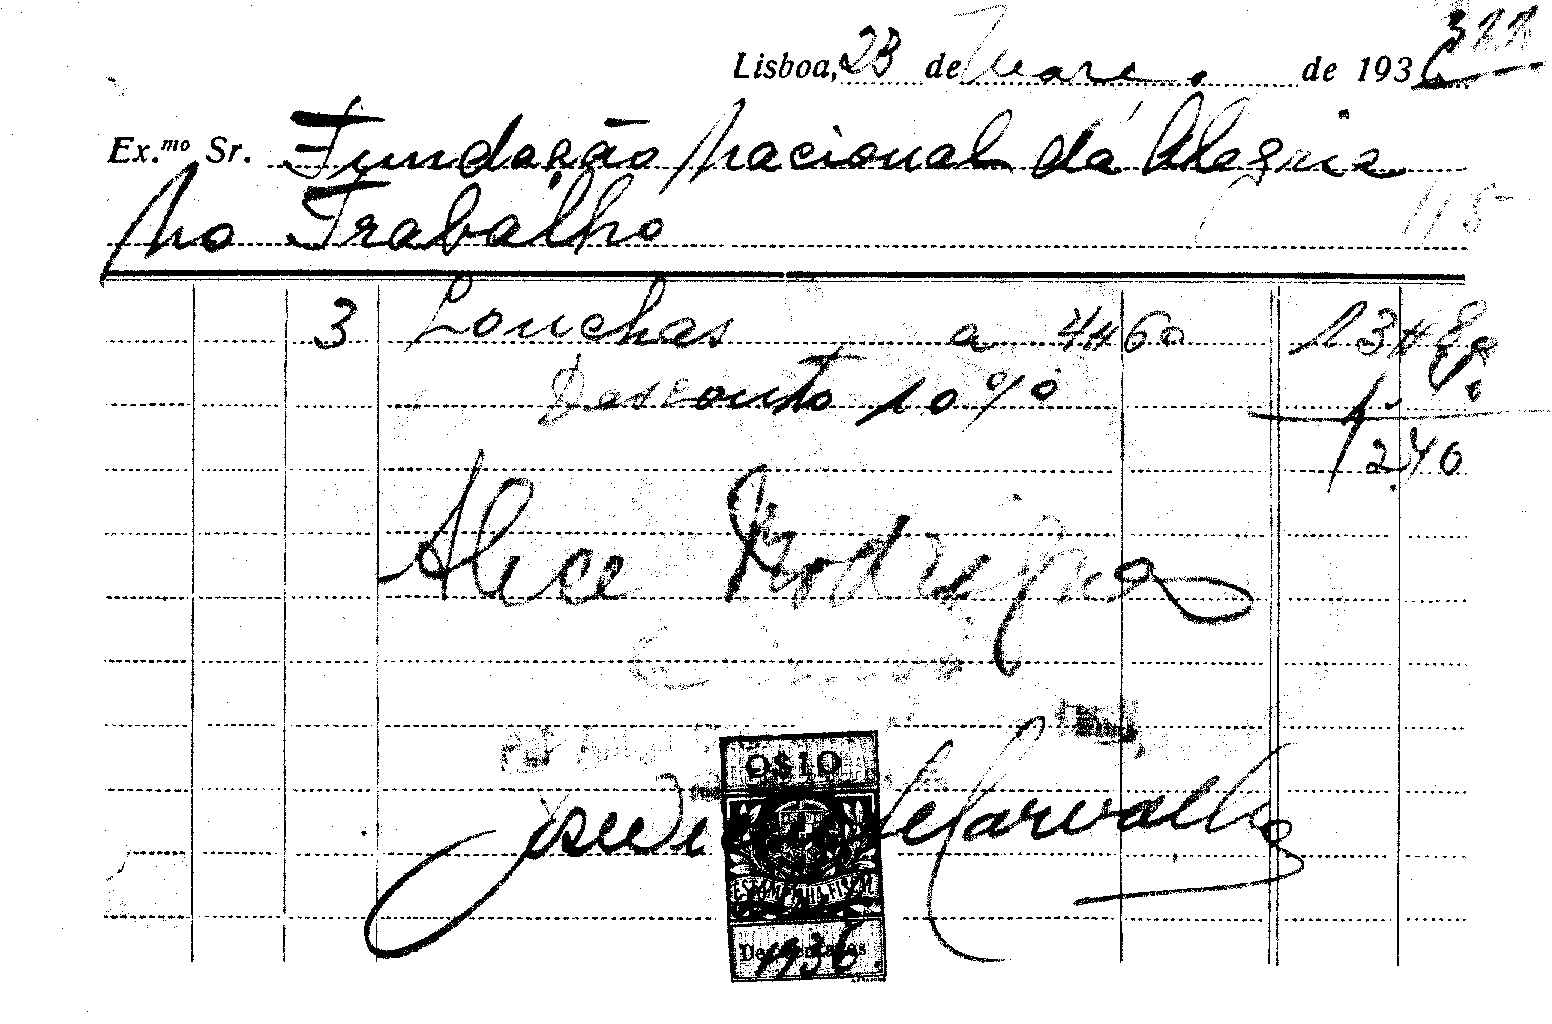 322
Lisboa, 23 de Março de 1936
Ex.mo Sr. Fundação Nacional da Alegria
No Trabalho
115
3 Conchas a 4$60 13$80
Desconto 10%
12,40
Alice Rodrigues
0$10
de Carvalho
ESTAMPILHA FISCAL
1936